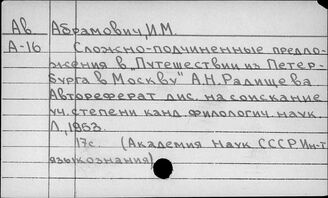 Ав Абрамович, И.М.
А-16 Сложно-подчиненные предло-
жения в „Путешествии из Петер-
бурга в Москву" А.Н. Радищева
Автореферат дис. на соискание
уч. степени канд. филологич. наук.
Л., 1953.
17с. (Академия Наук СССР Ин-т
языкознания)